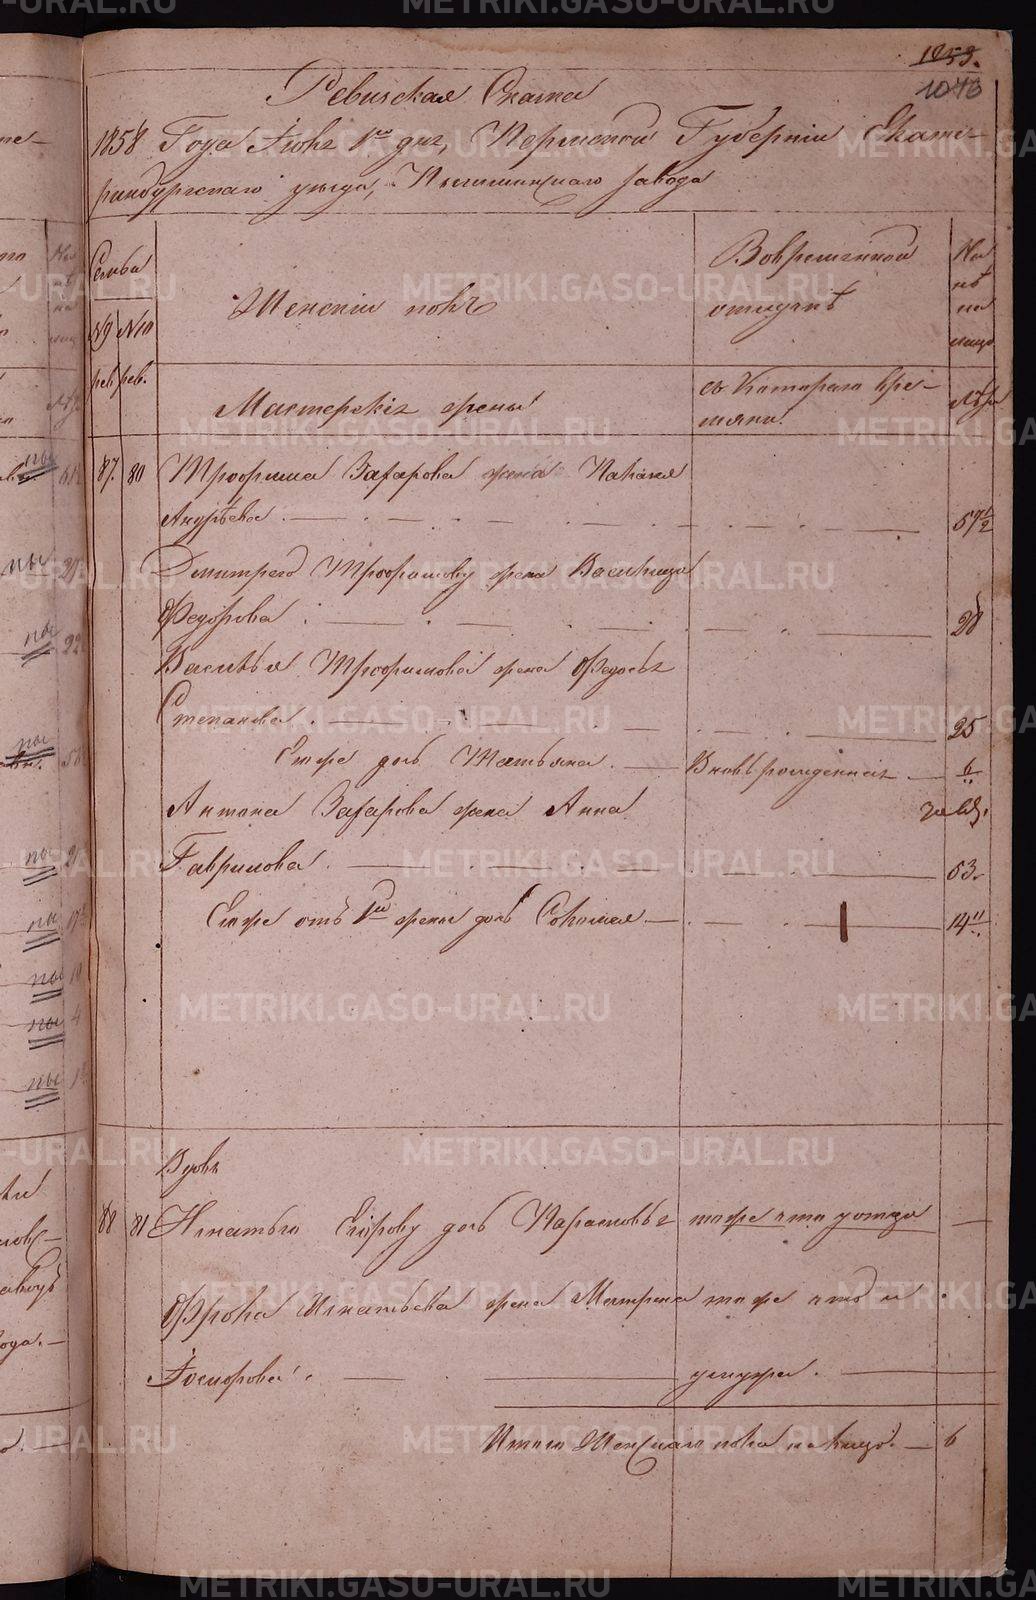 1053.
1043
Ревизская Сказка
1858 Года Іюня 1го дня, Пермской Губерніи Екате-
ринбургскаго уѣзда, Пышминскаго завода
Семьи
№9 рев.
№10 рев.
Женскій полъ
Во временной
отлучкѣ
На
лицо
Мастерскіе жены
съ котораго вре-
мяни.
Лѣта
87. 80 Трофима Захарова жена Наталья
Андрѣева 57 1/2
Дмитрея Трофимову жена Василиса
Федорова 28
Василья Трофимова жена Федосья
Степанова 25
Ево же дочь Татьяна. Вновь рожденная 6
Антона Захарова жена Анна
Гаврилова. 53.
Ево же отъ 1й жены дочь 14
Вдовы
88 81 Игнатья Егорову дочь Парасковья тоже что у отца
Фрола Игнатьева жена Матрена тоже что и
у мужа.
Итого Женскаго пола на лицо. 6
METRIKI.GASO-URAL.RU